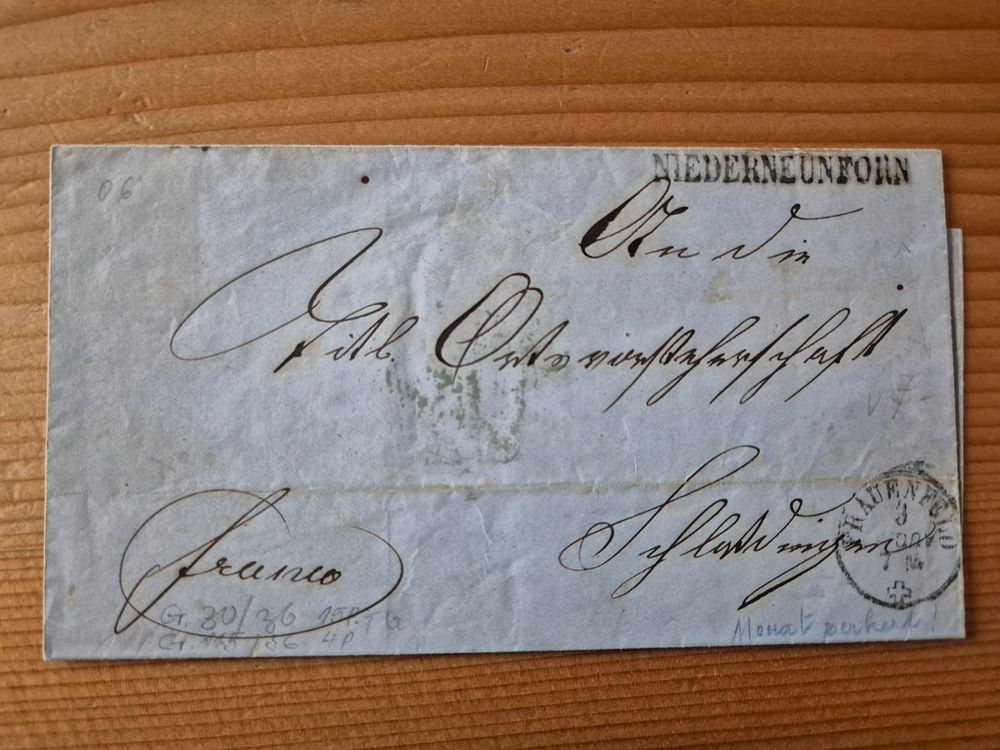 06
NIEDERNEUNFORN
An die
Titl. Ortsvorsteherschaft
v 7-
Schlattingen
franco
FRAUENFELD
3
7 M
Gr. 30/36 15P.
Gr. 115/36 4P
Monat verkehrt!